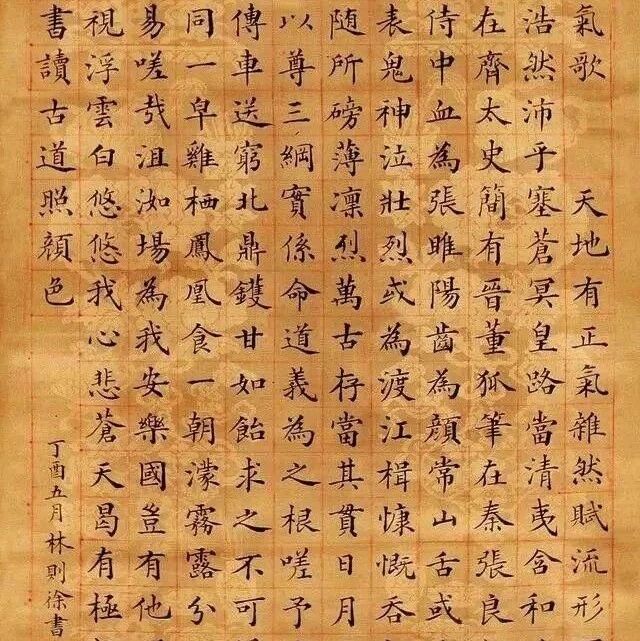 氣歌 天地有正氣雜然賦流形
浩然沛乎塞蒼冥皇路當清夷含和
在齊太史簡有晉董狐筆在秦張良
侍中血為張睢陽齒為顏常山舌或
表鬼神泣壯烈或為渡江楫慷慨吞
随所磅薄凜烈萬古存當其貫日月
以尊三綱實係命道義為之根嗟予
傳車送窮北鼎鑊甘如飴求之不可
同一皁雞栖鳳凰食一朝濛霧露分
易嗟哉沮洳場為我安樂國豈有他
視浮雲白悠悠我心悲蒼天曷有極
書讀古道照顏色
丁酉五月林則徐書